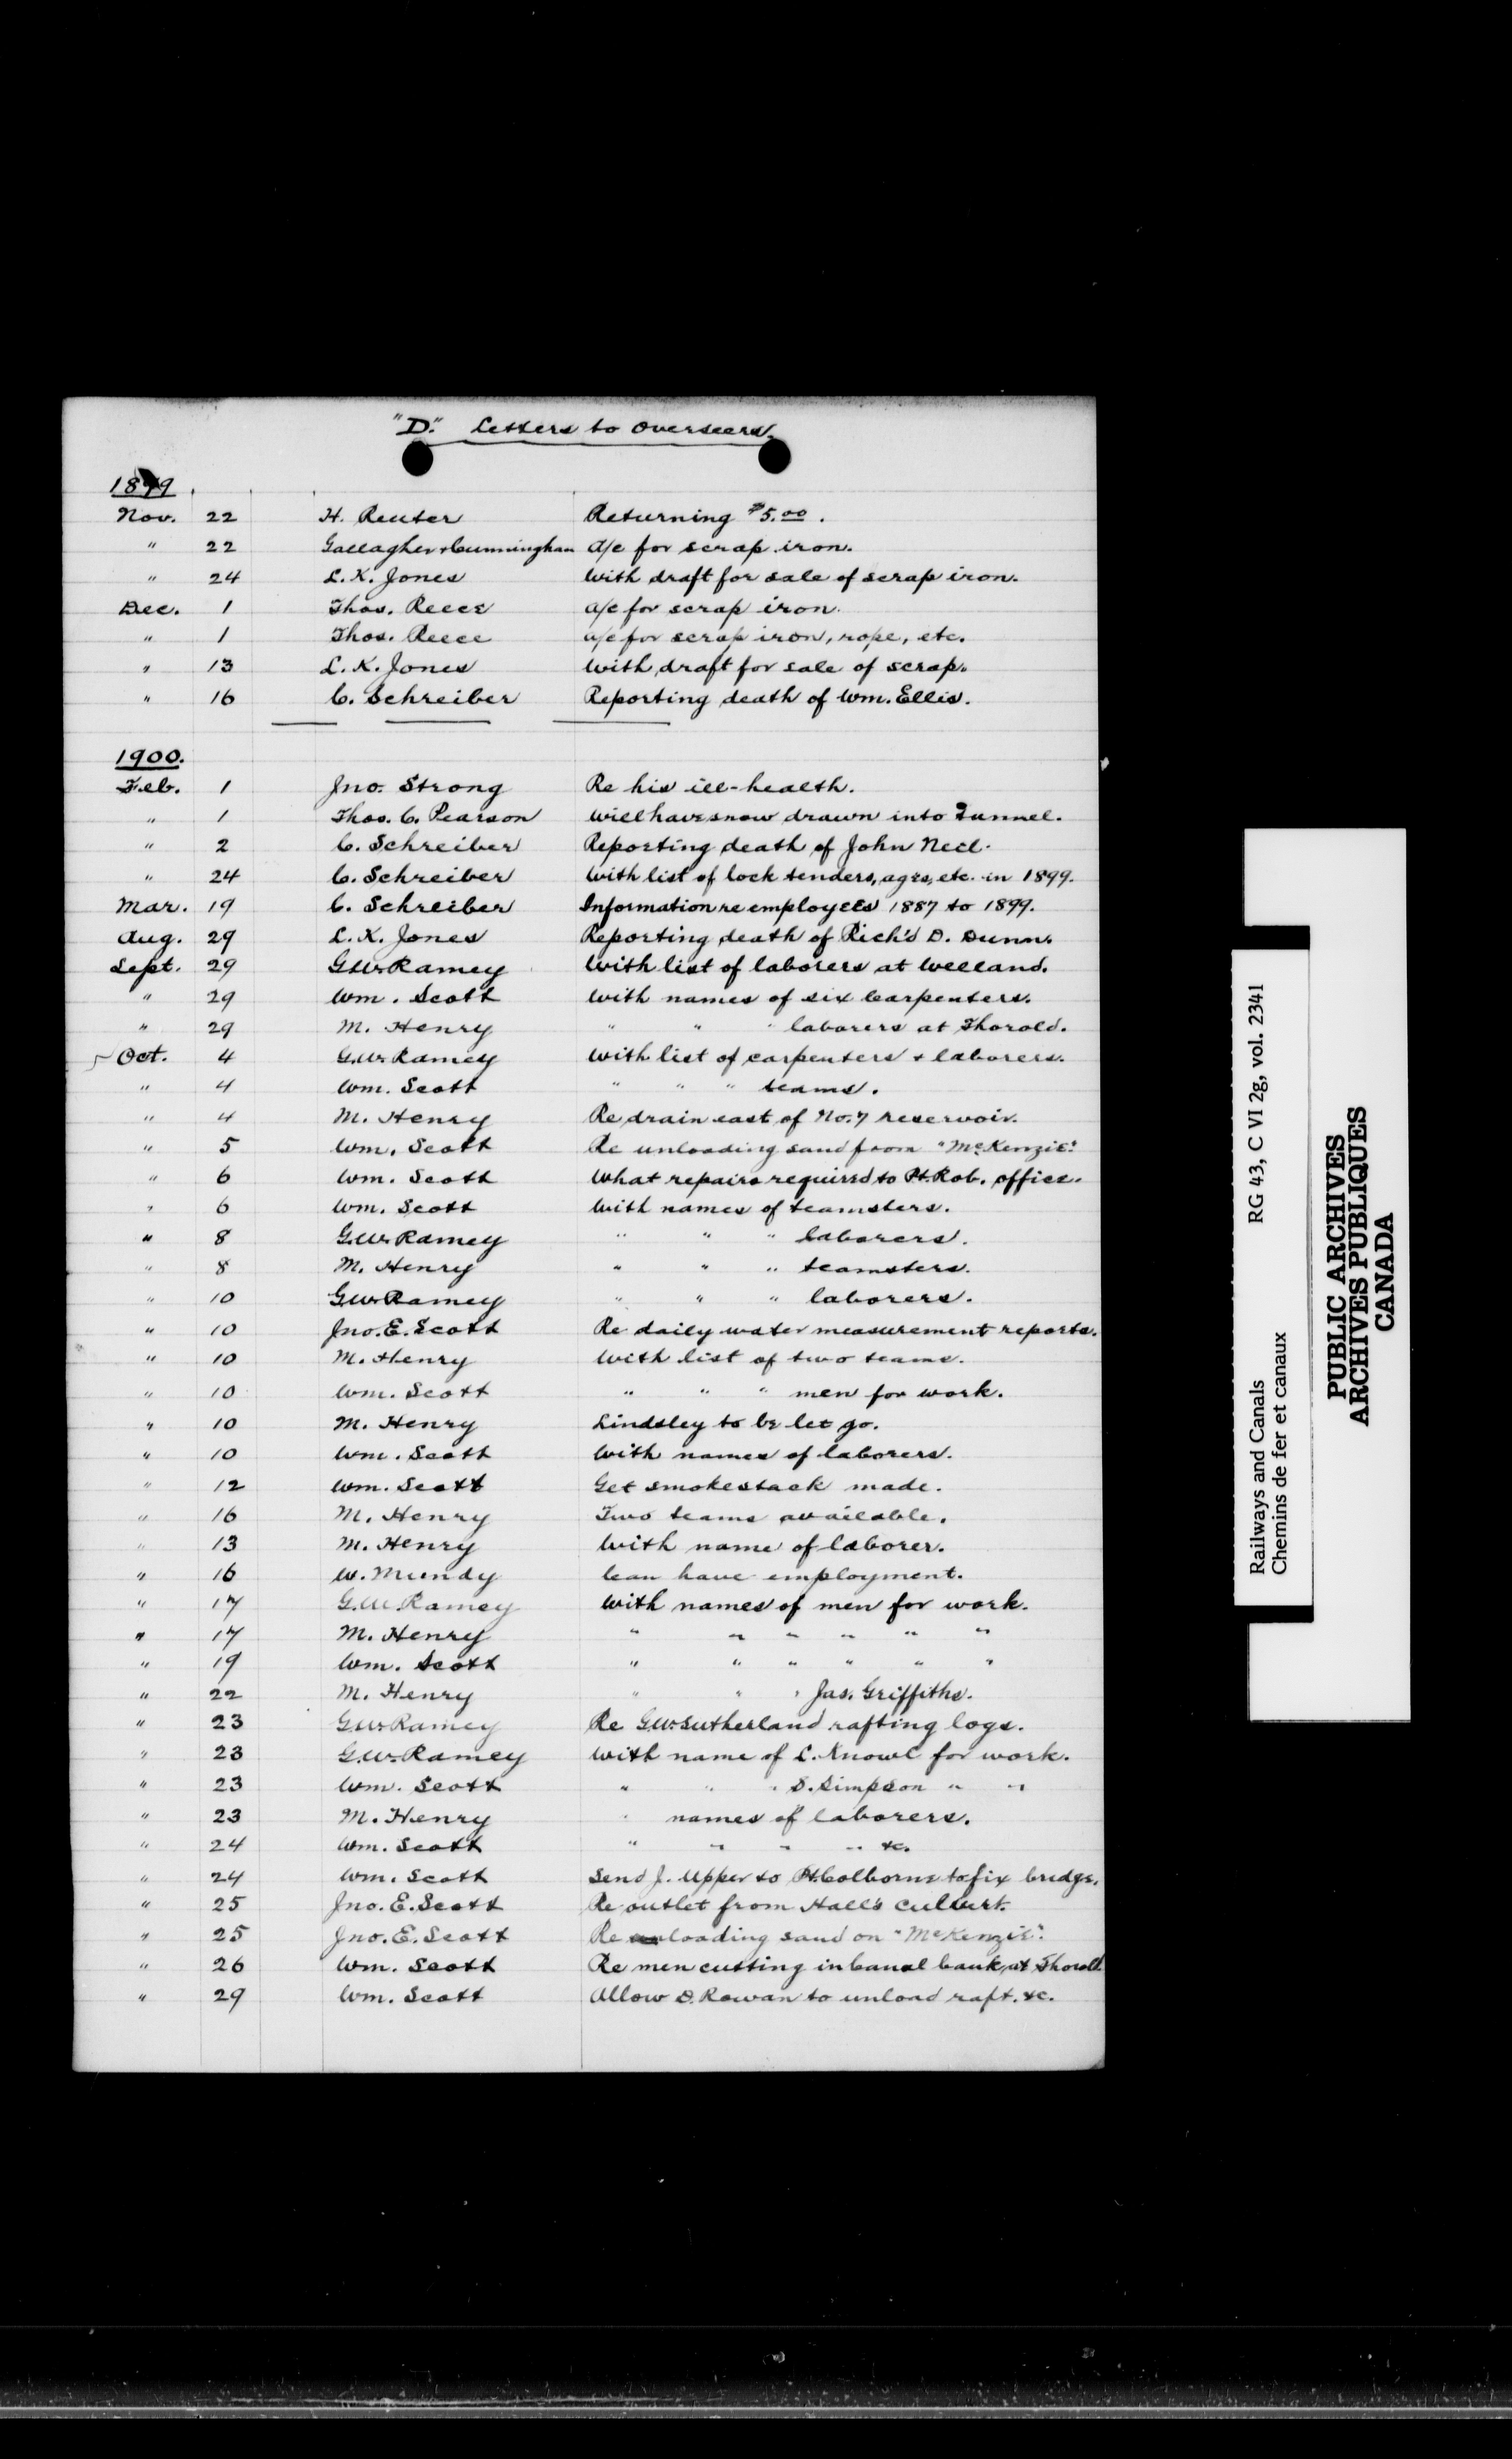 "D." Letters to Overseers.
1899
Nov. 22 H. Reuter Returning $5.00.
" 22 Gallagher & Cunningham a/c for scrap iron.
" 24 L. K. Jones With draft for sale of scrap iron.
Dec. 1 Thos. Reece a/c for scrap iron.
" 1 Thos. Reece a/c for scrap iron, rope, etc.
" 13 L. K. Jones With draft for sale of scrap.
" 16 C. Schreiber Reporting death of Wm. Ellis.
1900.
Feb. 1 Jno. Strong Re his ill-health.
" 1 Thos. C. Pearson Will have snow drawn into Tunnel.
" 2 C. Schreiber Reporting death of John
" 24 C. Schreiber With list of lock tenders, ages, etc. in 1899.
Mar. 19 C. Schreiber Information re employees 1887 to 1899.
Aug. 29 L. K. Jones Reporting death of Rich'd D. Dunn.
Sept. 29 G.W. Ramey With list of laborers at Welland.
" 29 Wm. Scott With names of six Carpenters.
" 29 M. Henry " " " laborers at Thorold.
Oct. 4 G.W. Ramey With list of carpenters & laborers.
" 4 Wm. Scott " " " teams.
" 4 M. Henry Re drain east of No. 7 reservoir.
" 5 Wm. Scott Re unloading sand from "McKenzie".
" 6 Wm. Scott What repairs required to Pt. Rob. office.
" 6 Wm. Scott With names of teamsters.
" 8 G.W. Ramey " " " laborers.
" 8 M. Henry " " " teamsters.
" 10 G.W. Ramey " " " laborers.
" 10 Jno. E. Scott Re daily water measurement reports.
" 10 M. Henry With list of two teams.
" 10 Wm. Scott " " " men for work.
" 10 M. Henry Lindsley to be let go.
" 10 Wm. Scott With names of laborers.
" 12 Wm. Scott Get smokestack made.
" 16 M. Henry Two teams available.
" 13 M. Henry With name of laborer.
" 16 W. Mundy Can have employment.
" 17 G.W. Ramey With names of men for work.
" 17 M. Henry " " " " " "
" 19 Wm. Scott " " " " " "
" 22 M. Henry " " " Jas. Griffiths.
" 23 G.W. Ramey Re G.W. Sutherland rafting logs.
" 23 G.W. Ramey With name of L. Knowl for work.
" 23 Wm. Scott " " " S. Simpson " "
" 23 M. Henry " names of laborers.
" 24 Wm. Scott " " " " &c.
" 24 Wm. Scott Send J. Upper to Pt. Colborne to fix bridge.
" 25 Jno. E. Scott Re outlet from Hall's Culvert.
" 25 Jno. E. Scott Re loading sand on "McKenzie".
" 26 Wm. Scott Re men cutting in Canal bank at Thorold
" 29 Wm. Scott Allow D. Rowan to unload raft. &c.
Railways and Canals RG 43, C VI 2g, vol. 2341
Chemins de fer et canaux
PUBLIC ARCHIVES
ARCHIVES PUBLIQUES
CANADA